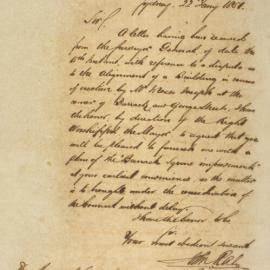 Sydney, 22 Jany 1851.
Sir,
A letter having been received
from the Surveyor General of date the
instant, with reference to a dispute as
to the Alignment of a Building in course
of erection by Mr at the
corner of Barrack and George Streets, I have
the honor, by direction of the Right
Worshipful the Mayor to request that you
will be pleased to furnish me with a
plan of the "Barrack Square improvements"
at your earliest convenience, as the matter
is to be brought under the consideration of
the Council without delay.
I have the honor to be
Sir
Your most obedient servant